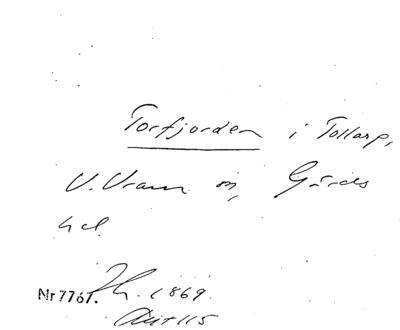 Torfjorden i Tollarp,
V. Vram sn, Gärds
hd.
Nr 7767. Th. 1869.